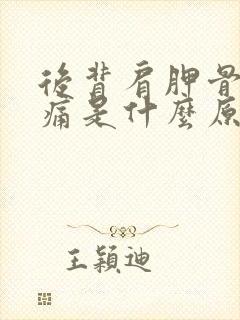 後背肩胛骨
痛是什麼原
王穎迪